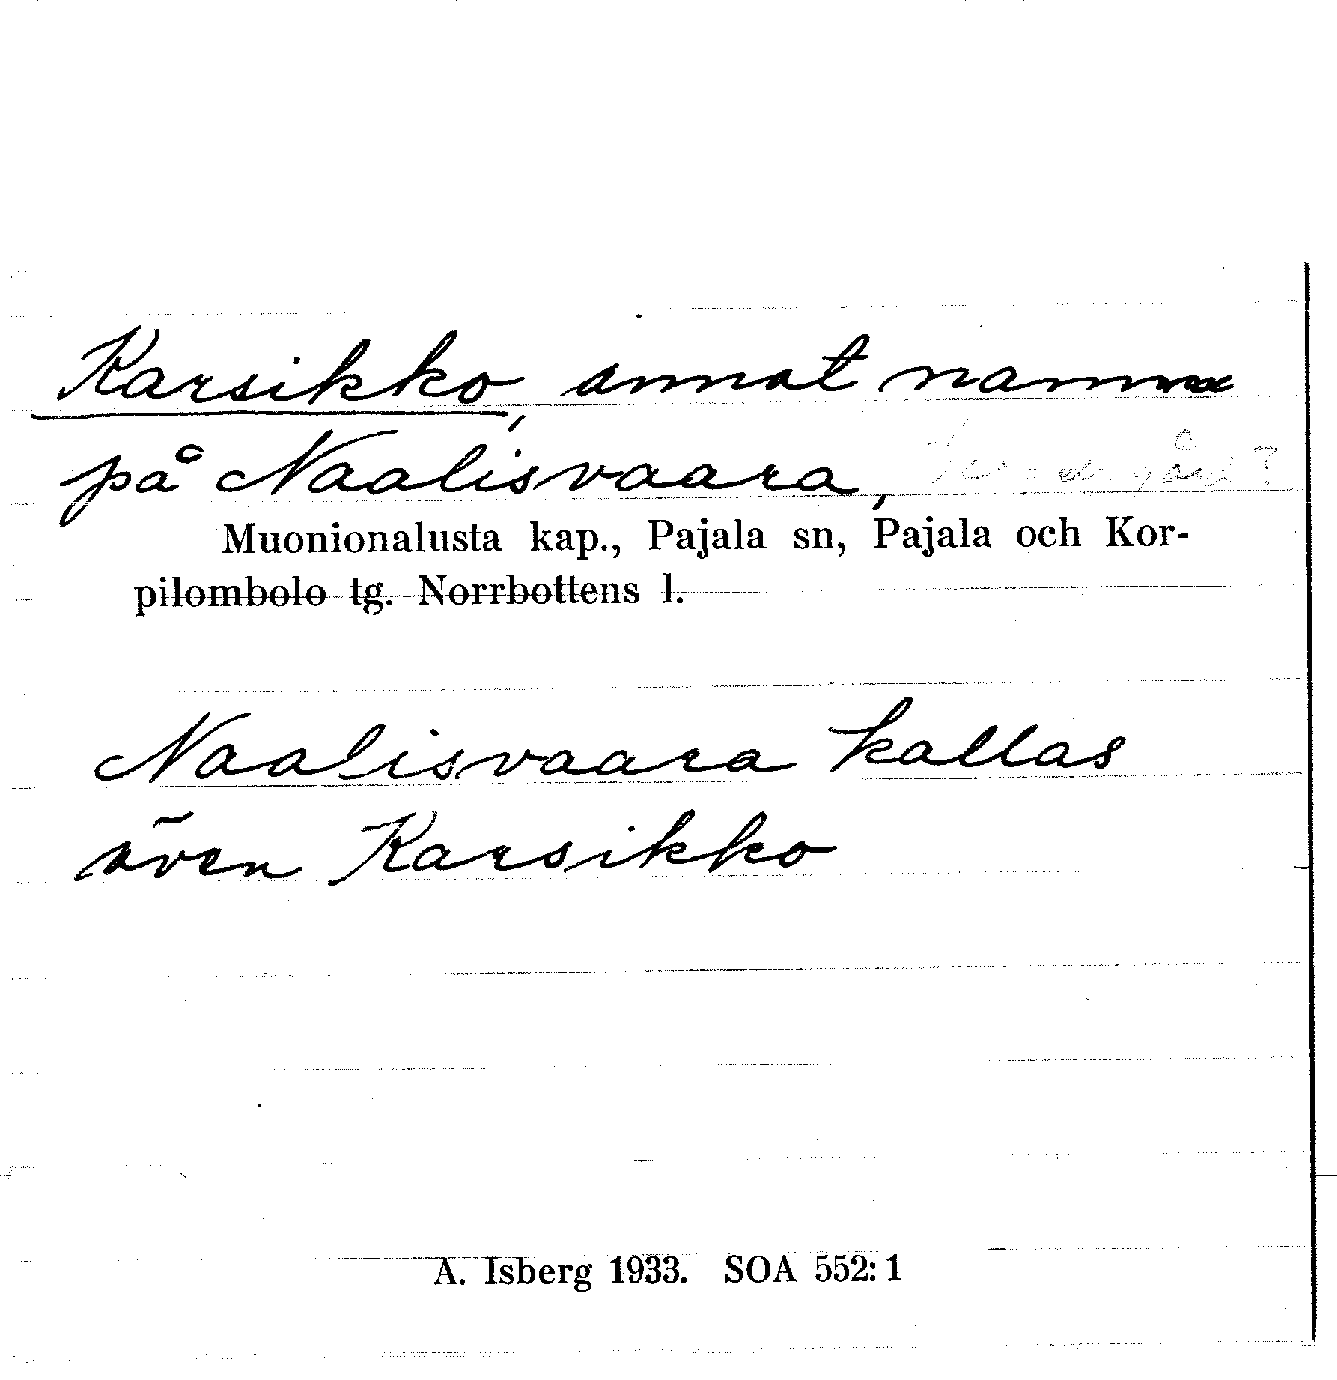 Karsikko, annat namn
på Naalisvaara,
Muonionalusta kap., Pajala sn, Pajala och Kor-
pilombolo tg. Norrbottens l.
Naalisvaara kallas
även Karsikko
A. Isberg 1933. SOA 552:1